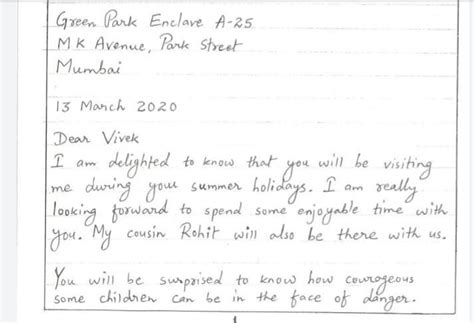 Green Park Enclave A-25
M K Avenue, Park Street
Mumbai
13 March 2020
Dear Vivek
I am delighted to know that you will be visiting
me during your summer holidays. I am really
looking forward to spend some enjoyable time with
you. My cousin Rohit will also be there with us.
You will be surprised to know how courageous
some children can be in the face of danger.